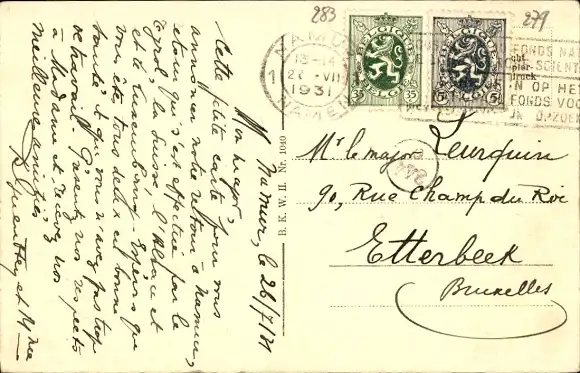 283
279
NAMUR
13-14
1 27 ·VII 1
1931
NAMEN
BELGIQUE BELGIË
35 35
BELGIQUE BELGIË
5c
FONDS NA
SCIENT
N OP HET
FONDS VOO
OPZOE
druck
B. K. W. II. Nr. 1040
Mr le major Leurquin
90, Rue Champ du Roi
Etterbeek
Bruxelles
Namur, le 26/7/31
Mon major,
Cette petite carte pour vous
annoncer notre retour à Namur,
retour qui s'est effectué par le
Tyrol, la Suisse, l'Alsace et
et le Luxembourg. Espérons que
vous êtes tous deux en bonne
santé et que vous n'avez pas trop
de travail. Présentez nos respects
à Madame et recevez nos
meilleures amitiés